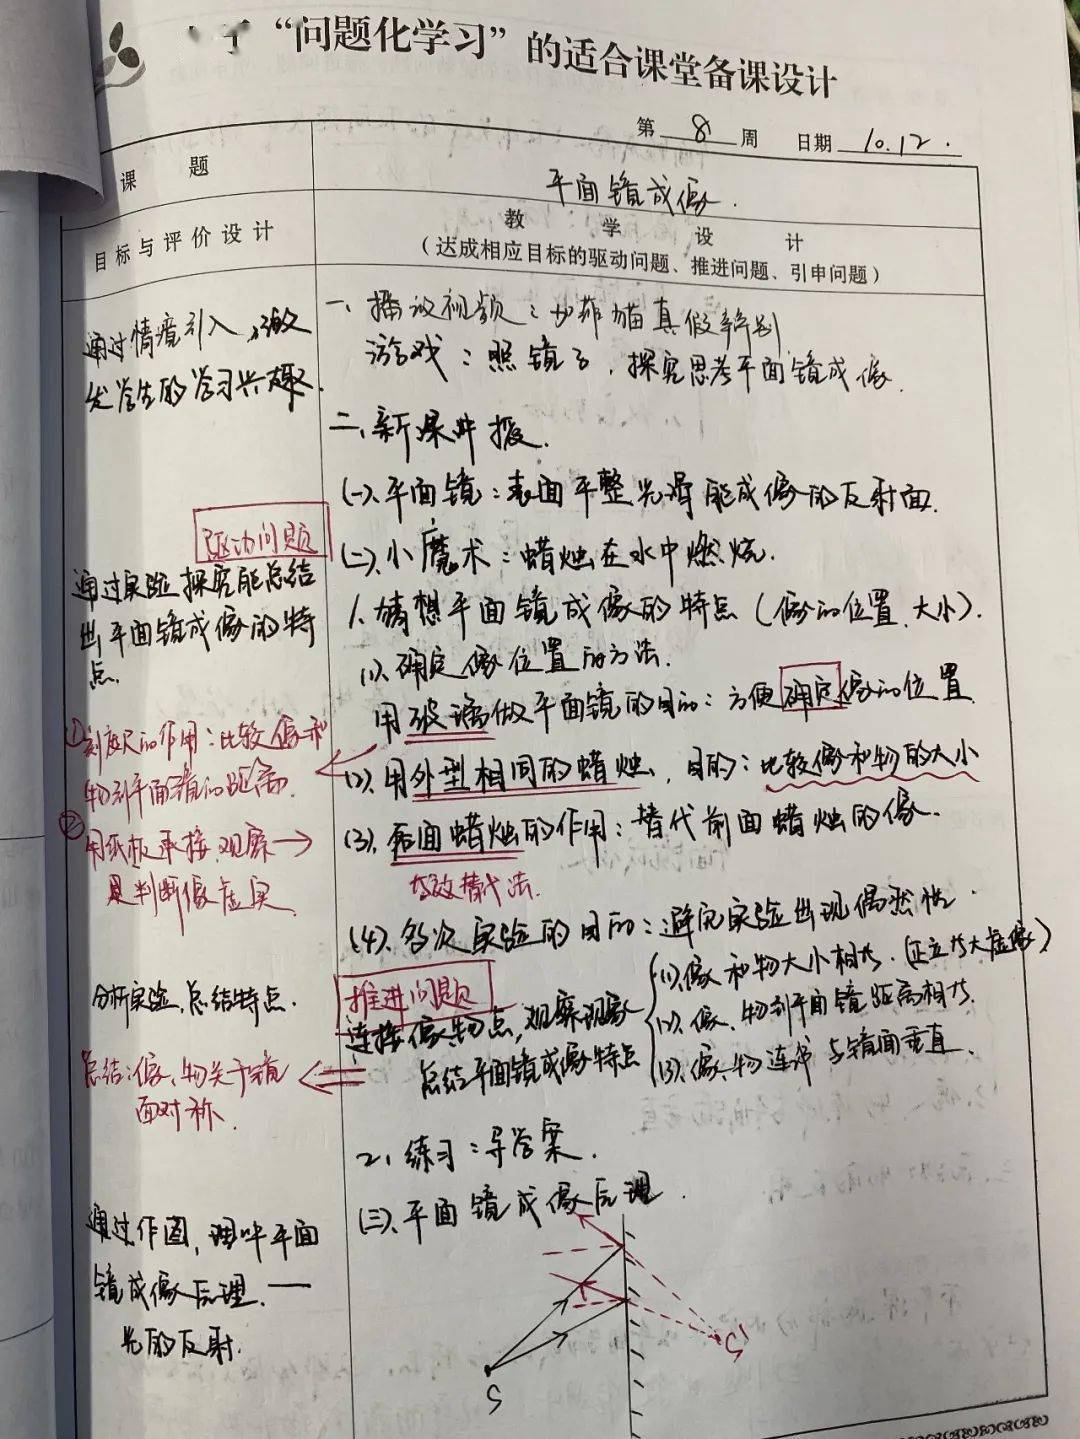 “问题化学习”的适合课堂备课设计
第 8 周 日期 10.12.
课 题
平面镜成像.
目标与评价设计
教 学 设 计
(达成相应目标的驱动问题、推进问题、引申问题)
通过情境引入,激
发学生的学习兴趣.
一、播放视频:加菲猫真假辨别
游戏:照镜子,探究思考平面镜成像.
二、新课
(一)、平面镜:表面平整光滑能成像的反射面.
驱动问题
通过实验探究能总结
出平面镜成像的特
点.
(二)、小魔术:蜡烛在水中燃烧.
1、猜想平面镜成像的特点(像的位置、大小).
(1)、确定像位置的方法.
用玻璃做平面镜的目的:方便确定像的位置
①刻度尺的作用:比较像和
物到平面镜的距离.
②用纸板承接,观察→
是判断像虚实.
(2)、用外型相同的蜡烛,目的:比较像和物的大小
(3)、后面蜡烛的作用:替代前面蜡烛的像.
等效替代法.
(4)、多次实验的目的:避免实验出现偶然性.
分析实验,总结特点.
推进问题
连接像物点,观察现象
总结平面镜成像特点
(1)、像和物大小相等.(正立等大虚像)
(2)、像、物到平面镜距离相等.
(3)、像、物连线与镜面垂直.
总结:像、物关于镜
面对称.
2、练习:导学案.
(三)、平面镜成像原理.
通过作图,理解平面
镜成像原理.——
光的反射.
S
S'